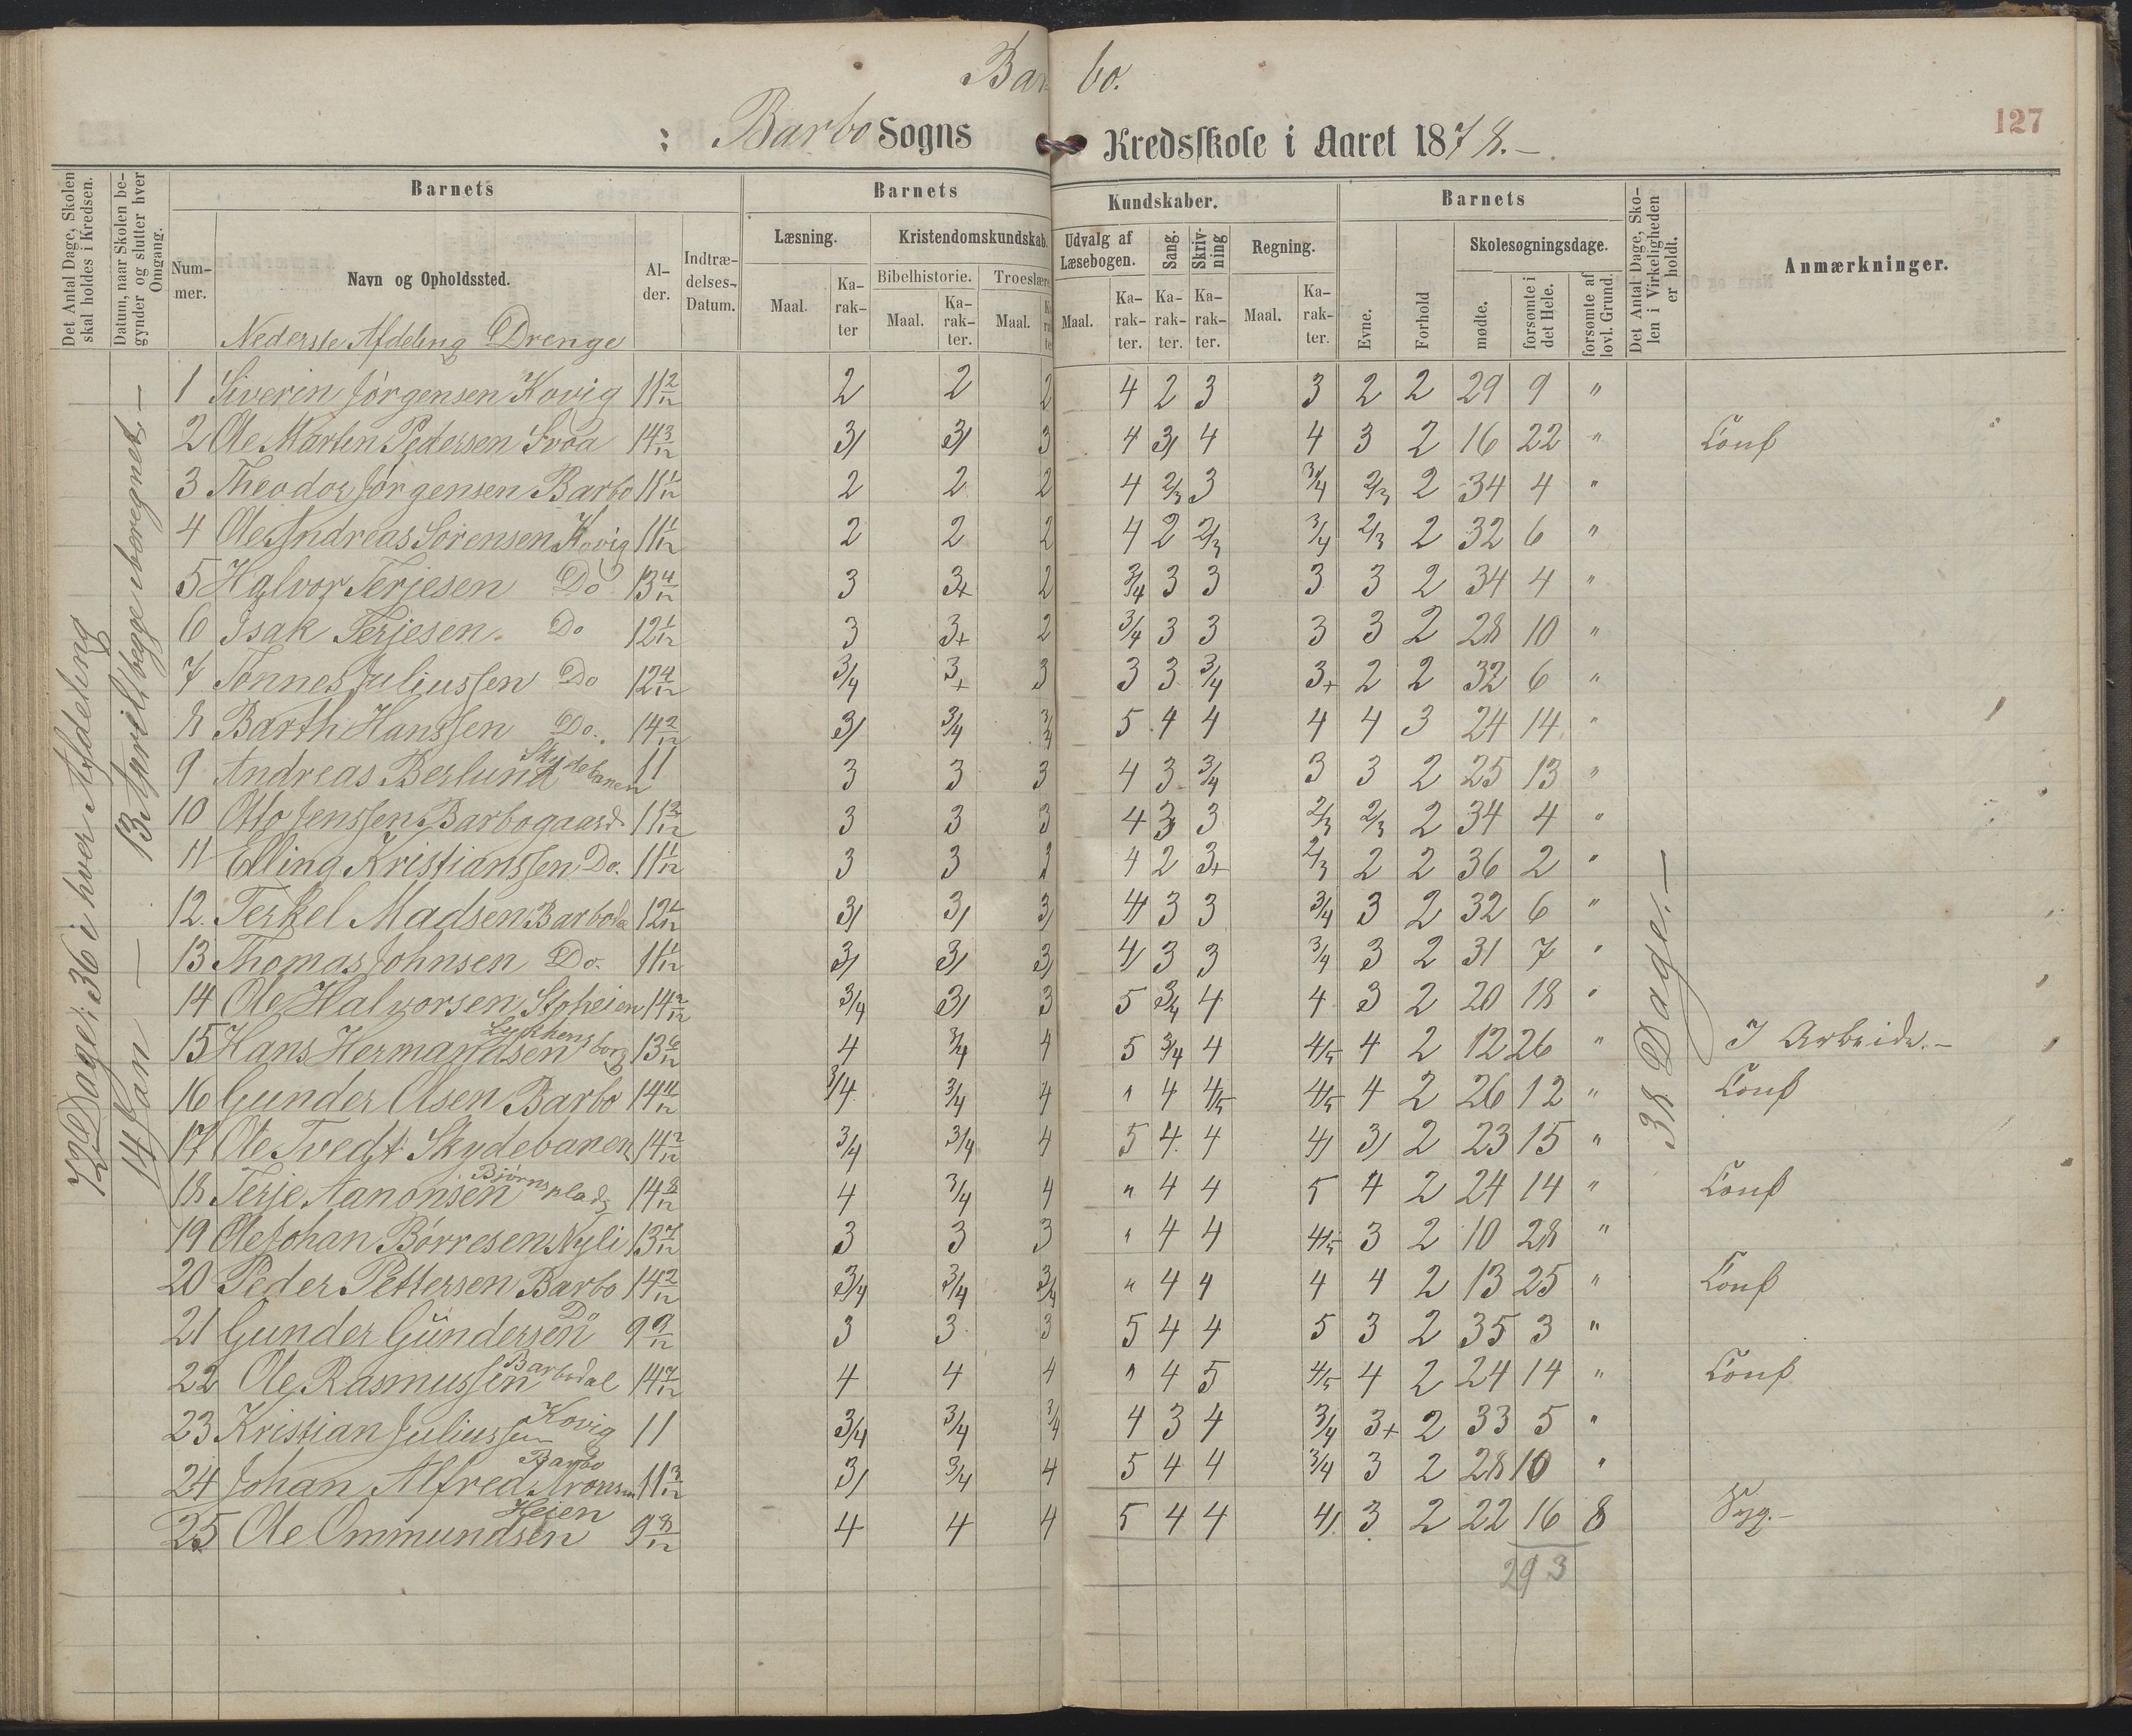 Barbo.
127
Barbo Sogns Kredsskole i Aaret 1878.-
Det Antal Dage, Skolen skal holdes i Kredsen.
Datum, naar Skolen begynder og slutter hver Omgang.
Barnets Barnets Kundskaber. Barnets
Nummer. Navn og Opholdssted. Alder. Indtrædelses-Datum.
Læsning. Maal. Karakter
Kristendomskundskab. Bibelhistorie. Maal. Karakter. Troeslære Maal.
Udvalg af Læsebogen. Maal. Karakter. Sang. Karakter. Skrivning Karakter. Regning. Maal. Karakter.
Evne. Forhold Skolesøgningsdage. mødte. forsømte i det Hele. forsømte af lovl. Grund.
Det Antal Dage, Skolen i Virkeligheden er holdt.
Anmærkninger.
72 Dage: 36 i hver Afdeling
14 Jan — 13 April begge iberegnet. —
38 Dage. —
Nederste Afdeling Drenge
1 Siverin Jørgensen Kovig 11 2/12 2 2 2 4 2 3 3 2 2 29 9 "
2 Ole Marten Pedersen 14 3/12 3/ 3/ 3 4 3/ 4 4 3 2 16 22 " Conf
3 Theodor Jørgensen Barbo 11 1/12 2 2 2 4 2/3 3 3/4 2/3 2 34 4 "
4 Ole Andreas Sørensen Kovig 11 1/12 2 2 2 4 2 2/3 3/4 2/3 2 32 6 "
5 Halvor Terjesen Do 13 4/12 3 3+ 2 3/4 3 3 3 3 2 34 4 "
6 Isak Terjesen. Do 12 1/12 3 3+ 2 3/4 3 3 3 3 2 28 10 "
7 Tønnes Juliussen Do 12 4/12 3/4 3+ 3 3 3 3/4 3+ 2 2 32 6 "
8 Barth Hanssen Do. 14 2/12 3/ 3/4 3/4 5 4 4 4 4 3 24 14 "
9 Andreas Berlund Skydebanen 11 3 3 3 4 3 3/4 3 3 2 25 13 "
10 Otto Jenssen Barbogaard 11 3/12 3 3 3 4 3 3 2/3 2/3 2 34 4 "
11 Elling Kristianssen Do. 11 1/12 3 3 3 4 2 3+ 2/3 2 2 36 2 "
12. Terkel Madsen 12 4/12 3/ 3/ 3/ 4/ 3 3 3/4 3 2 32 6 "
13 Thomas Johnsen Do. 11 1/12 3/ 3/ 3/ 4/ 3 3 3/4 3 2 31 7 "
14 Ole Halvorsen Stoheien 14 2/12 3/4 3/ 3 5 3/4 4 4 3 2 20 18 "
15 Hans Hermandsen Lykkensborg 13 6/12 4 3/4 4 5 3/4 4 4/5 4 2 12 26 " I Arbeide.-
16 Gunder Olsen Barbo 14 4/12 3/4 3/4 4 " 4 4/5 4/5 4 2 26 12 " Conf
17 Ole Tvedt Skydebanen 14 2/12 3/4 3/4 4 5 4 4 4/ 3/ 2 23 15 "
18 Terje Aanonsen Bjørnsplads 14 8/12 4 3/4 4 " 4 4 5 4 2 24 14 " Conf
19 Ole Johan Børresen Nyli 13 7/12 3 3 3 " 4 4 4/5 3 2 10 28 "
20 Peder Pettersen Barbo 14 2/12 3/4 3/4 3/4 " 4 4 4 4 2 13 25 " Conf
21 Gunder Gundersen Do 9 9/12 3 3 3 5 4 4 5 3 2 35 3 "
22 Ole Rasmussen Barbodal 14 7/12 4 4 4 " 4 5 4/5 4 2 24 14 " Conf
23 Kristian Juliussen Kovig 11 3/4 3/4 3/4 4 3 4 3/4 3+ 2 33 5 "
24 Johan Alfred Aronsen Barbo 11 3/12 3/ 3/4 4 5 4 4 3/4 3 2 28 10 "
25 Ole Ommundsen Heien 9 8/12 4 4 4 5 4 4 4/ 3 2 22 16 8 Syg.-
293